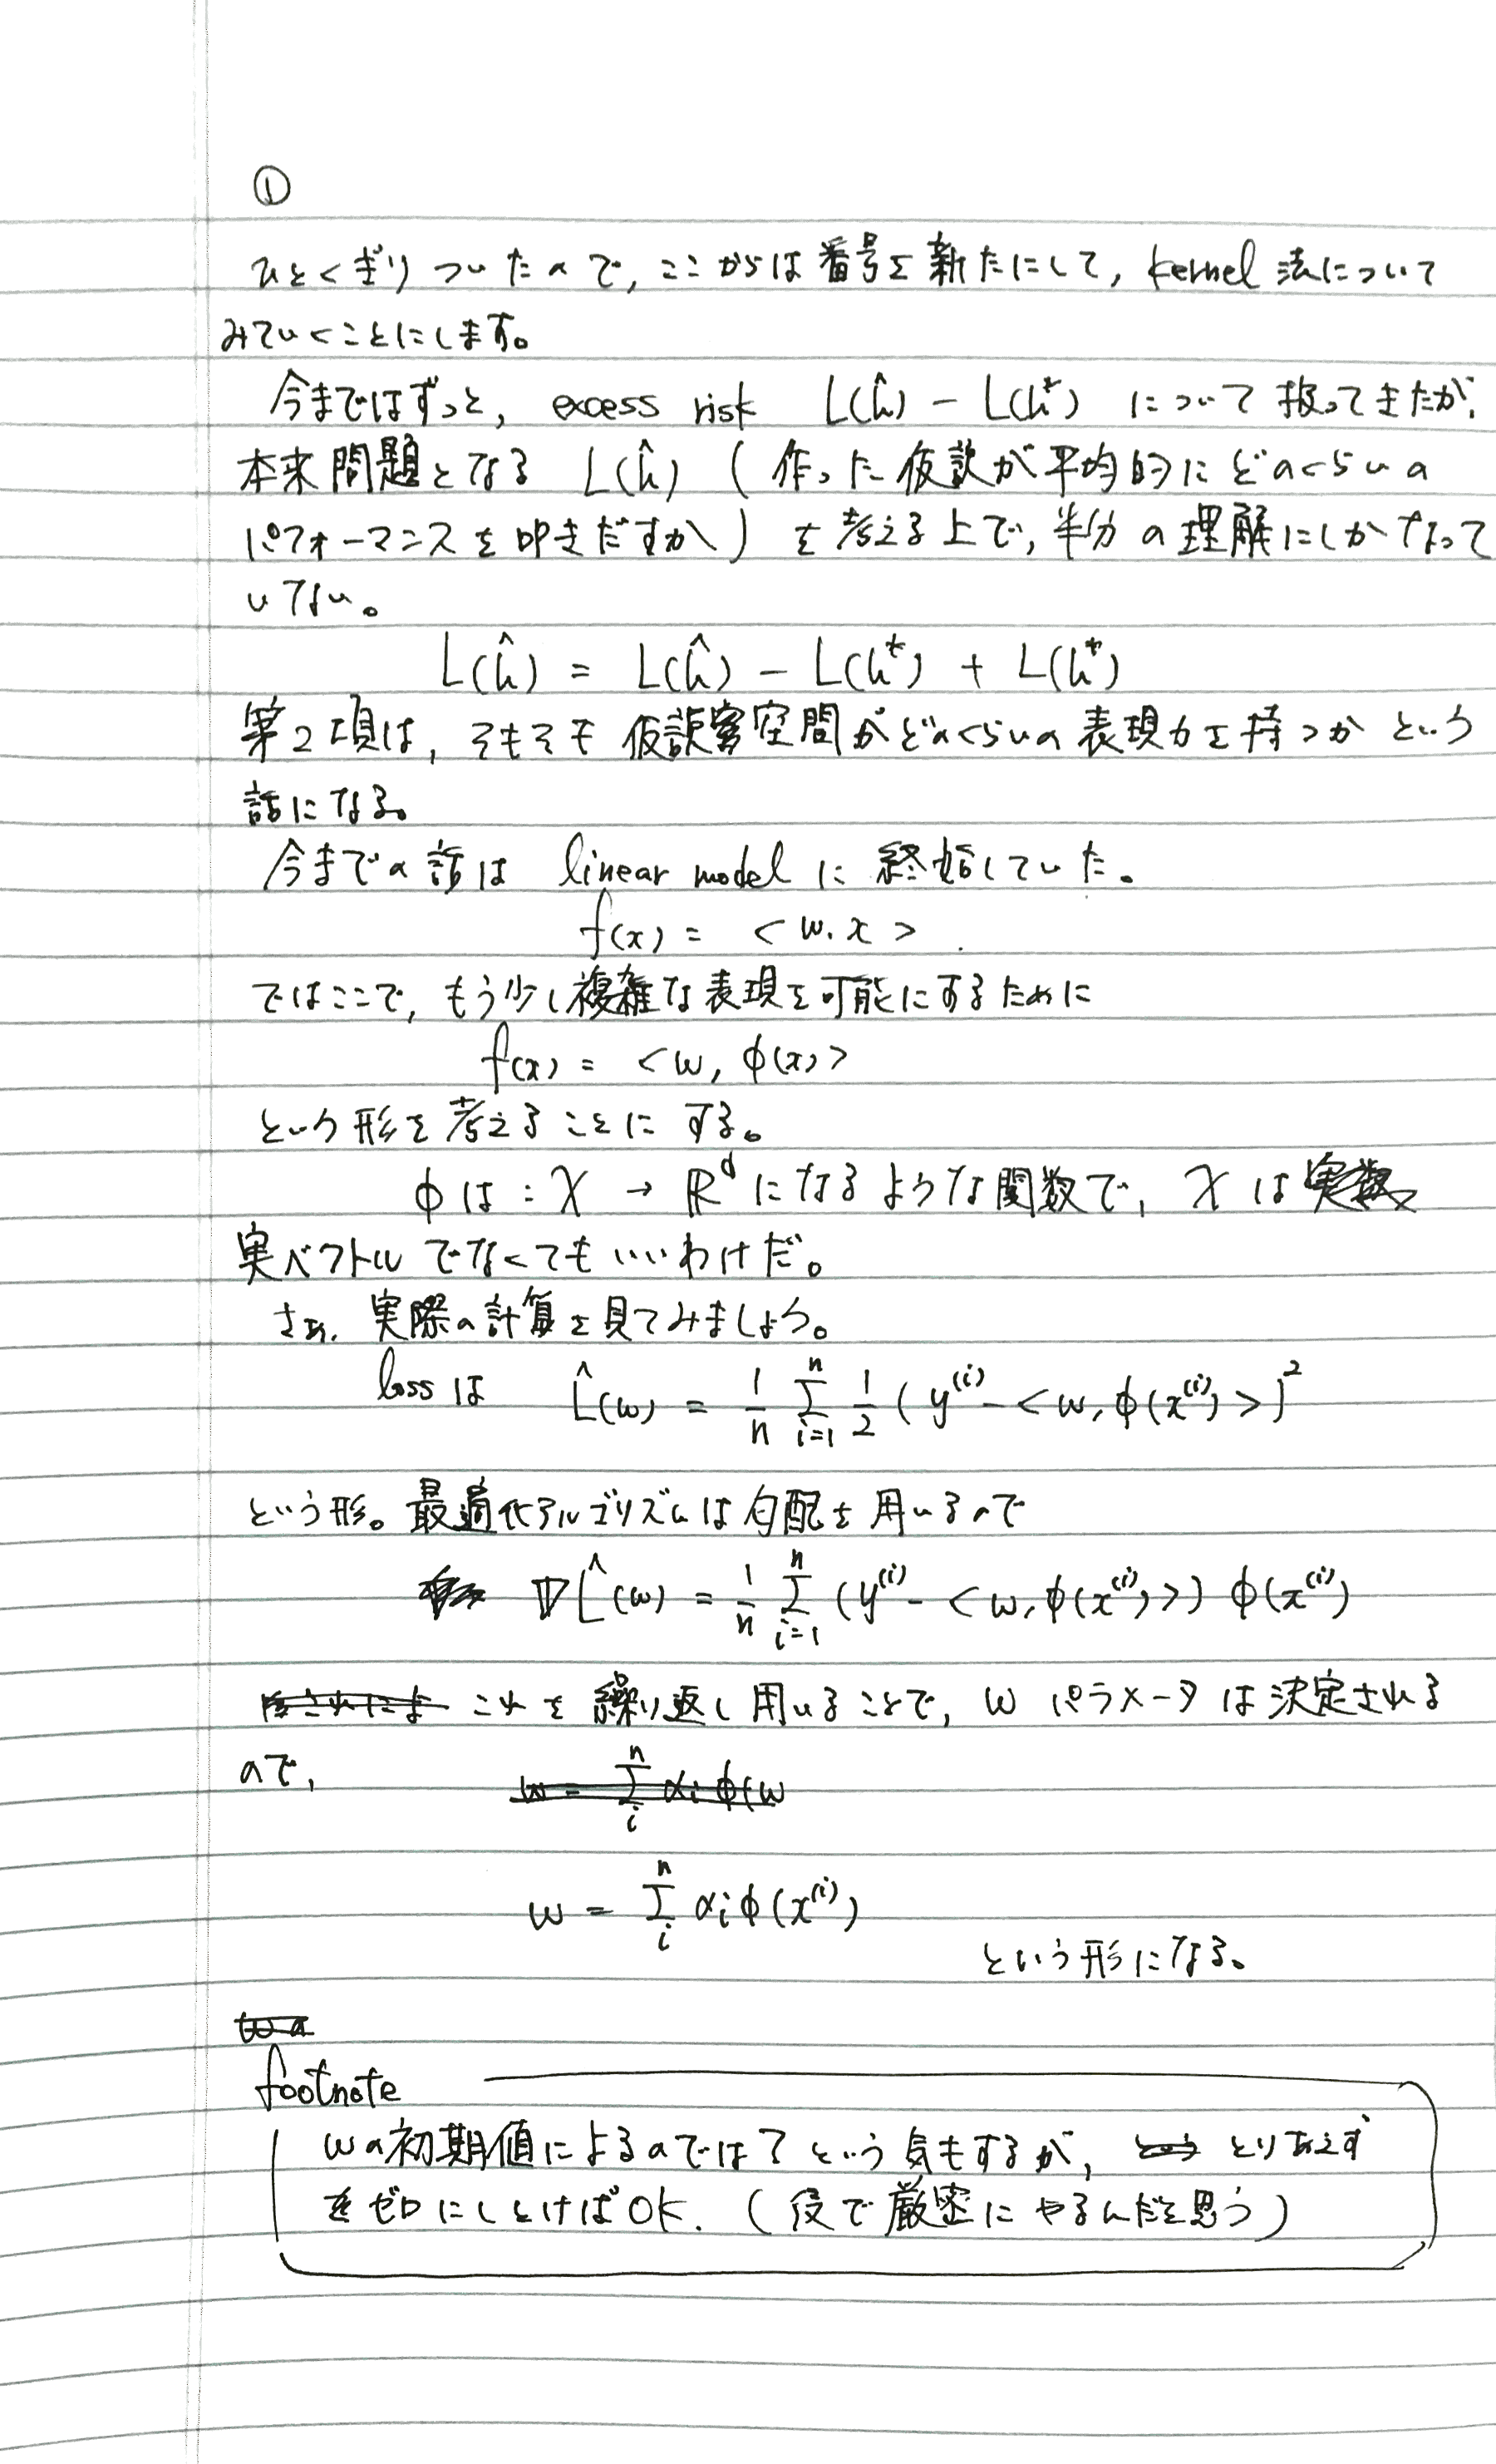 ①
ひとくぎりついたので, ここからは番号を新たにして, kernel 法について
みていくことにします。
今まではずっと, excess risk L(ĥ) − L(h*) について扱ってきたが,
本来問題となる L(ĥ) (作った仮説が平均的にどのくらいの
パフォーマンスを叩きだすか) を考える上で, 半分の理解にしかなって
いない。
L(ĥ) = L(ĥ) − L(h*) + L(h*)
第2項は, そもそも仮説空間がどのくらいの表現力を持つかという
話になる。
今までの話は linear model に終始していた。
f(x) = < w, x >
ではここで, もう少し複雑な表現を可能にするために
f(x) = < w, φ(x) >
という形を考えることにする。
φは : X → ℝᵈ になるような関数で, X は 実数
実ベクトルでなくてもいいわけだ。
さあ, 実際の計算を見てみましょう。
loss は L̂(w) = 1/n Σ_{i=1}^{n} 1/2 ( y⁽ⁱ⁾ − < w, φ(x⁽ⁱ⁾) > )²
という形。最適化アルゴリズムは勾配を用いるので
∇L̂(w) = 1/n Σ_{i=1}^{n} (y⁽ⁱ⁾ − < w, φ(x⁽ⁱ⁾) >) φ(x⁽ⁱ⁾)
これを繰り返し用いることで, w パラメータは決定される
ので,
w = Σ_{i}^{n} αi φ(w
w = Σ_{i}^{n} αi φ(x⁽ⁱ⁾)
という形になる。
footnote
wの初期値によるのでは? という気もするが, とりあえず
をゼロにしとけばOK. (後で厳密にやるんだと思う)